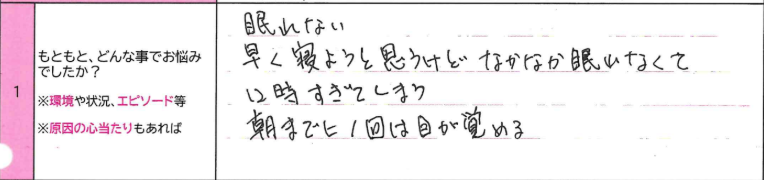 1
もともと、どんな事でお悩み
でしたか？
※環境や状況、エピソード等
※原因の心当たりもあれば
眠れない
早く寝ようと思うけど なかなか眠れなくて
12時すぎてしまう
朝までに1回は目が覚める